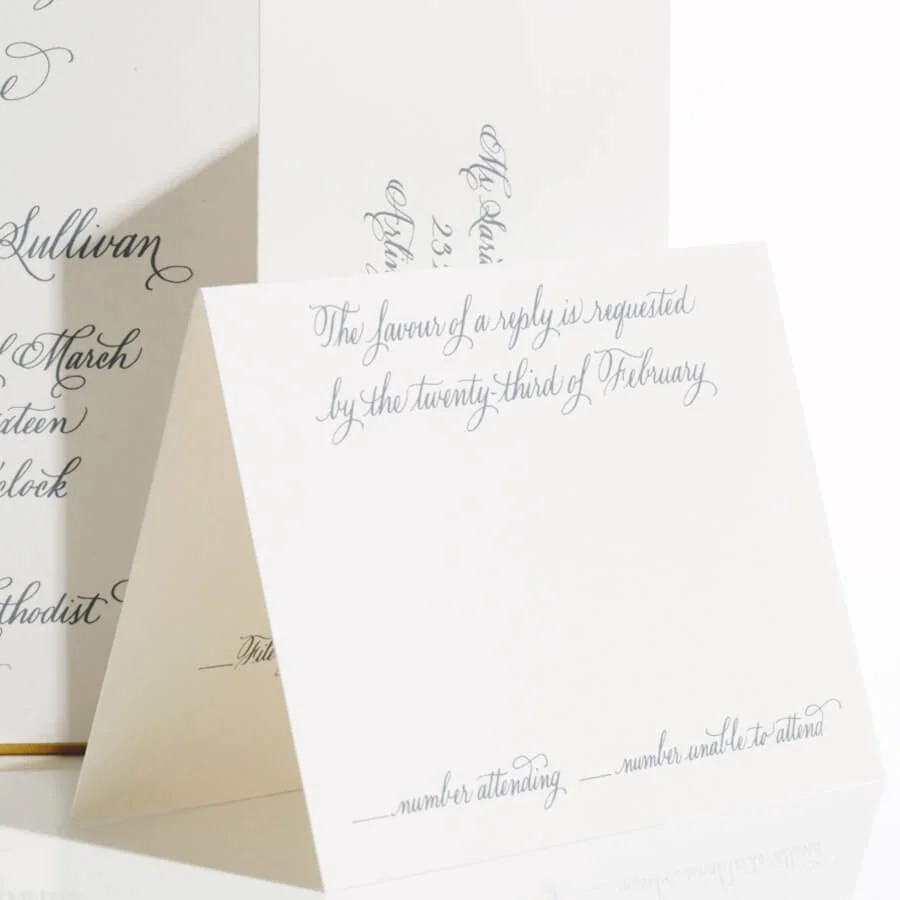 e
Sullivan
March
ixteen
clock
thodist
Ms. Sari
23
Arlin
The favour of a reply is requested
by the twenty-third of February
File
number attending number unable to attend